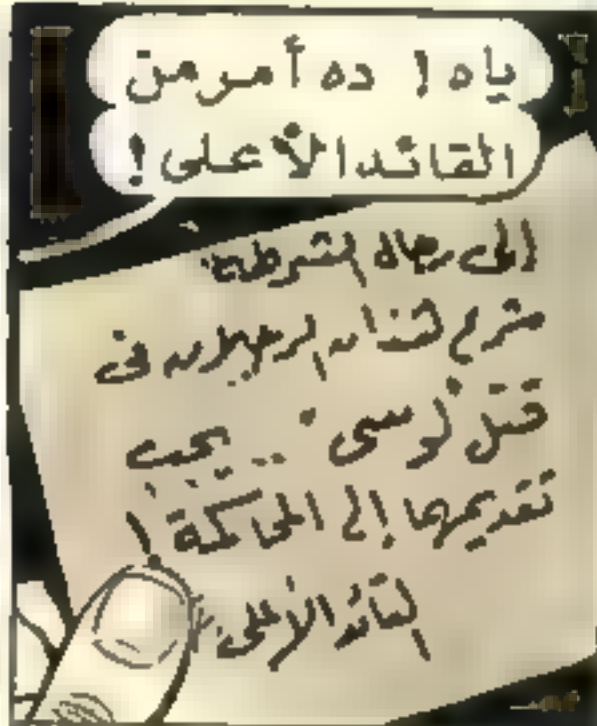 ياه ! ده أمر من
القائد الأعلى !
إلى رجال الشرطة:
الرجلان فى
قتل لوسى .. يجب
تقديمهما إلى المحاكمة !
القائد الأعلى